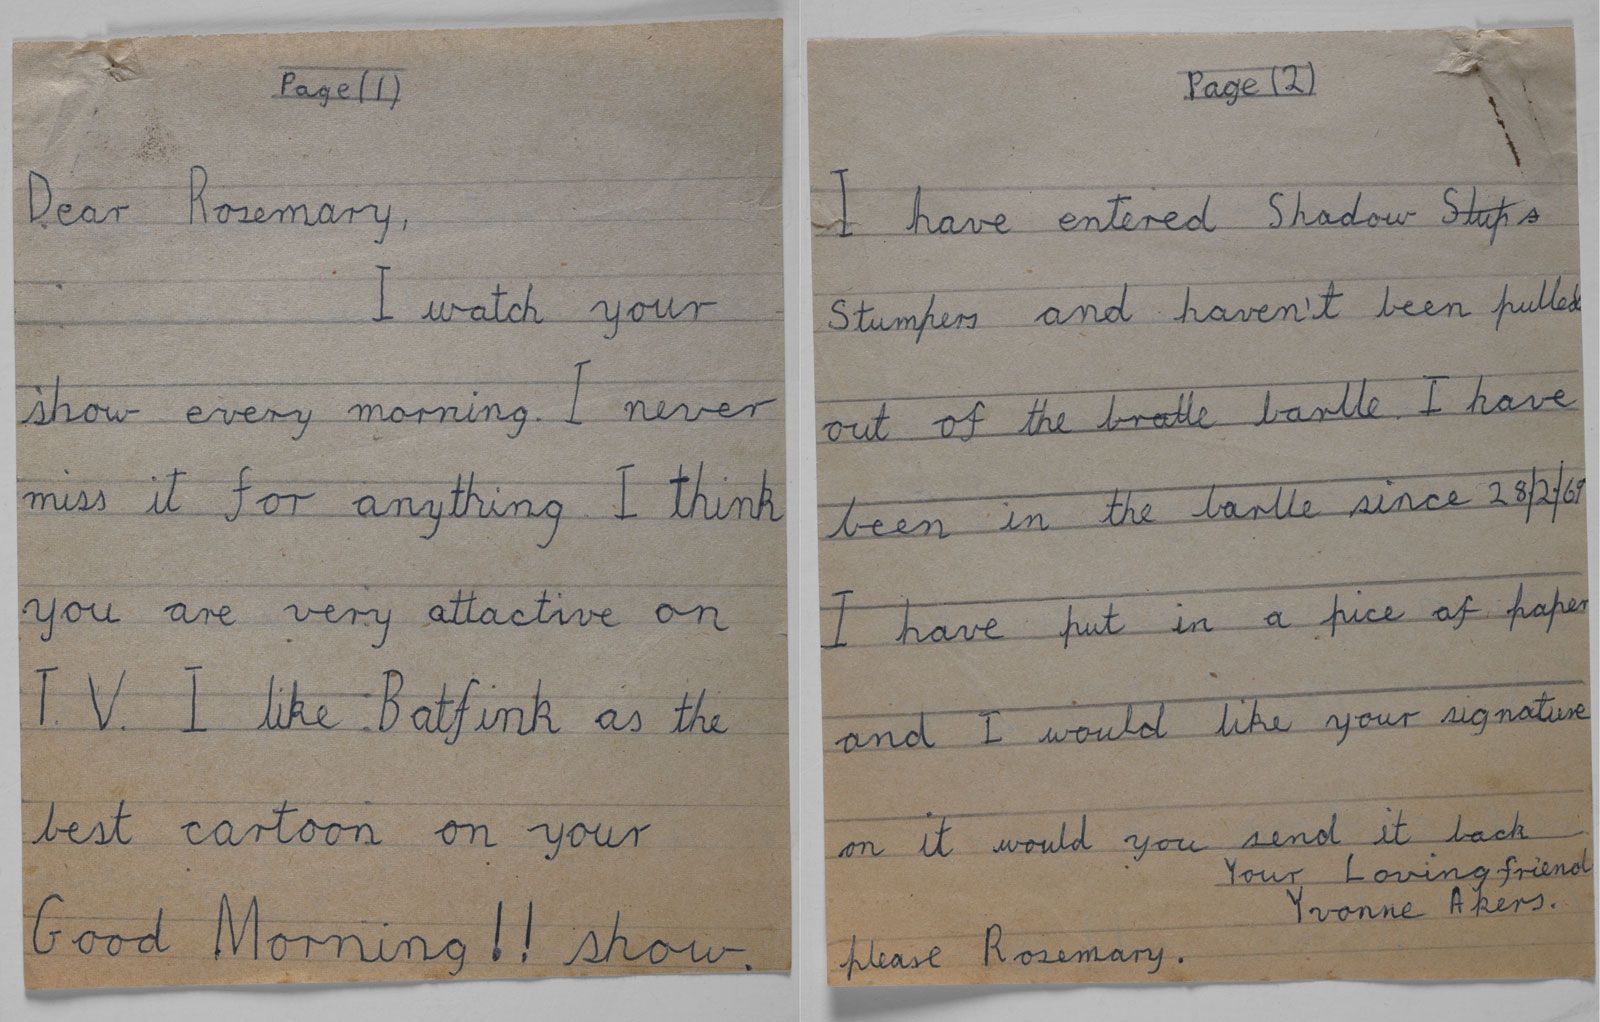 Page (1)
Dear Rosemary,
I watch your
show every morning. I never
miss it for anything. I think
you are very attactive on
T.V. I like Batfink as the
best cartoon on your
Good Morning!! show.
Page (2)
I have entered Shadow Stups
Stumpers and haven't been pulled
out of the bratle barlle. I have
been in the barlle since 28/2/69
I have put in a pice of paper
and I would like your signature
on it would you send it back
Your Loving friend
Yvonne Akers.
please Rosemary.